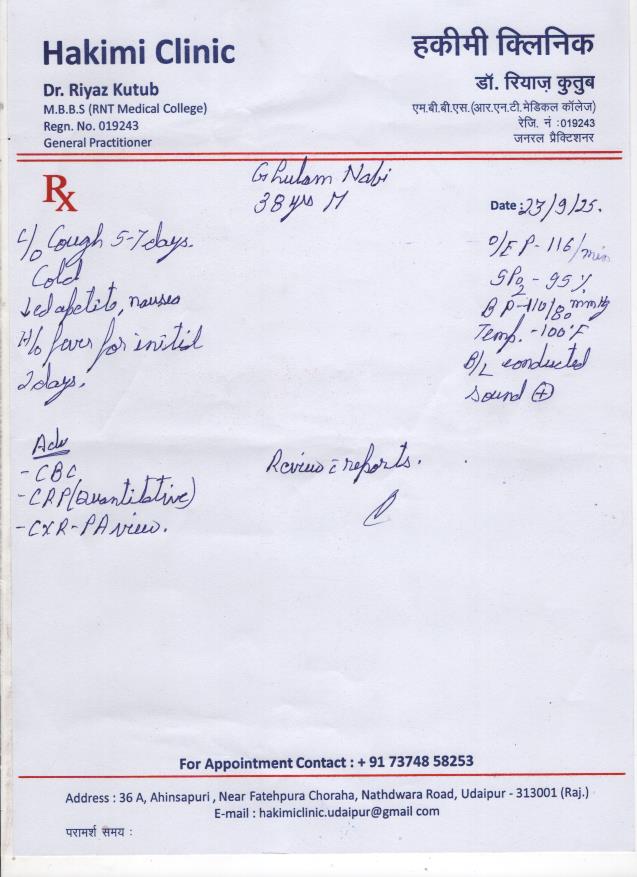 Hakimi Clinic
हकीमी क्लिनिक
Dr. Riyaz Kutub
डॉ. रियाज़ क़ुतुब
M.B.B.S (RNT Medical College)
एम.बी.बी.एस.(आर.एन.टी.मेडिकल कॉलेज)
Regn. No. 019243
रेजि. नं :019243
General Practitioner
जनरल प्रैक्टिशनर
Rx
Ghulam Nabi
38 yrs M
Date : 23/9/25.
C/o Cough 5-7 days.
Cold
↓ed apetite, nausea
H/o fever for initial
2 days.
O/E P- 116/min
SPO2 - 95 %
BP-110/80 mmHg
Temp. - 100°F
B/L conducted
sound ⊕
Adv
- CBC
- CRP (Quantitative)
- CXR-PA view.
Review c̄ reports.
For Appointment Contact : + 91 73748 58253
Address : 36 A, Ahinsapuri , Near Fatehpura Choraha, Nathdwara Road, Udaipur - 313001 (Raj.)
E-mail : hakimiclinic.udaipur@gmail.com
परामर्श समय :